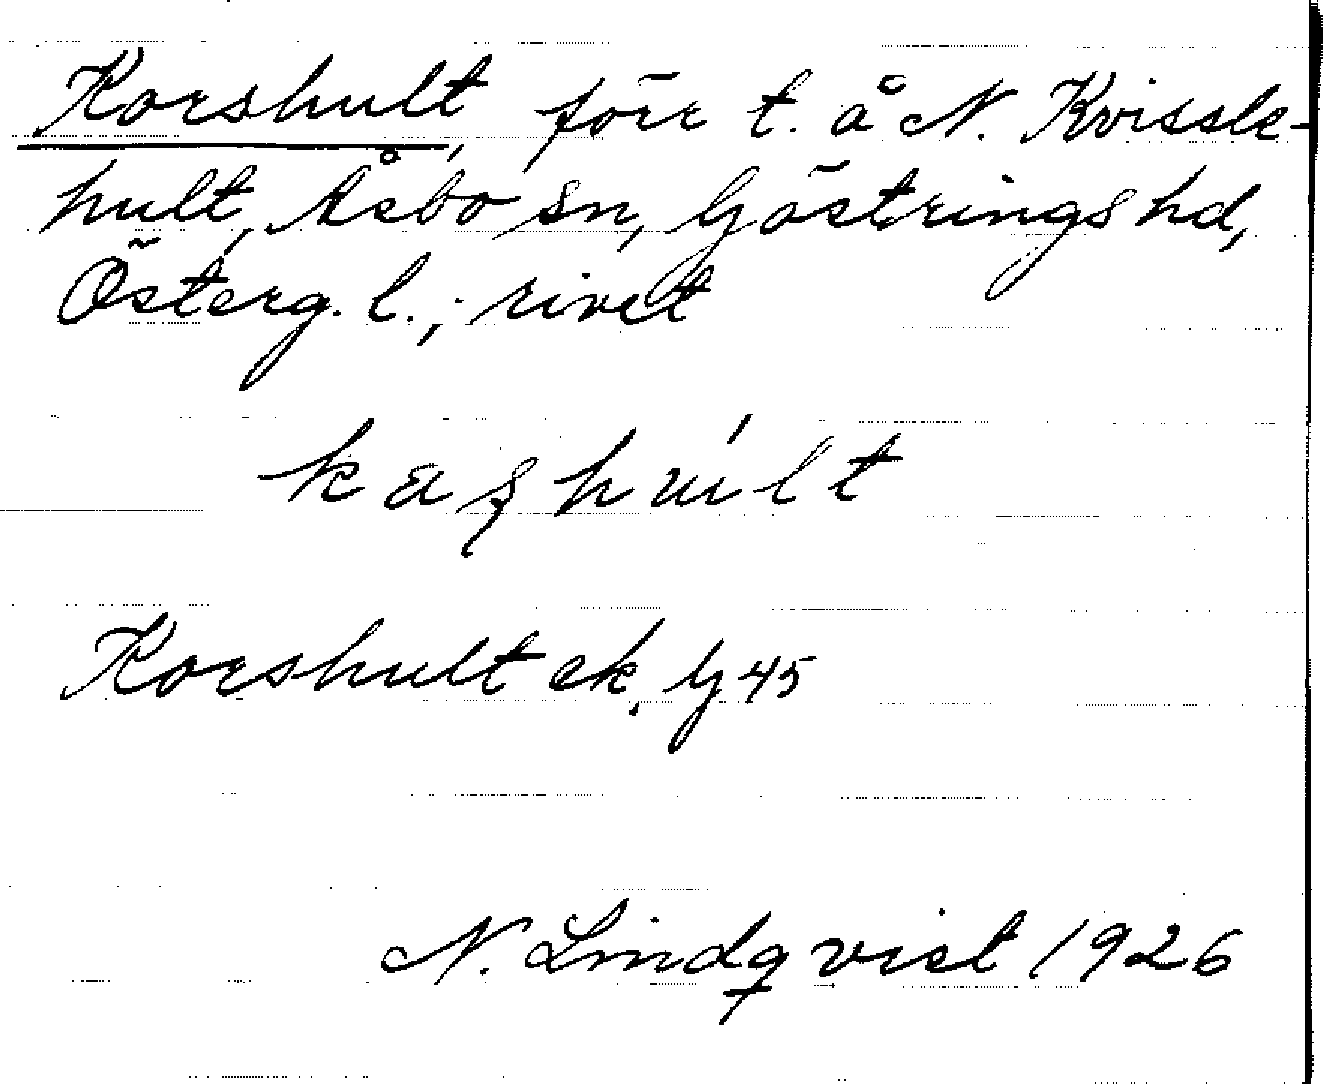 Korshult, förr t. å N. Kvissle-
hult, Åsbo sn, Göstrings hd,
Österg. l.; rivet
Korshult ek, G 45
N. Lindqvist 1926